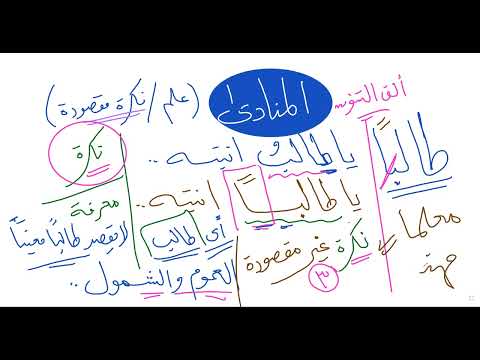 المنادى
(علم / نكرة مقصودة)
ألف التنوين
طالبًا
يا طالبُ انتبه ..
نكرة
يا طالبًا انتبه ..
معرفة
أي طالب
لا قصد طالبًا معينًا
معلما
نكرة غير مقصودة
٣
العموم والشمول ..